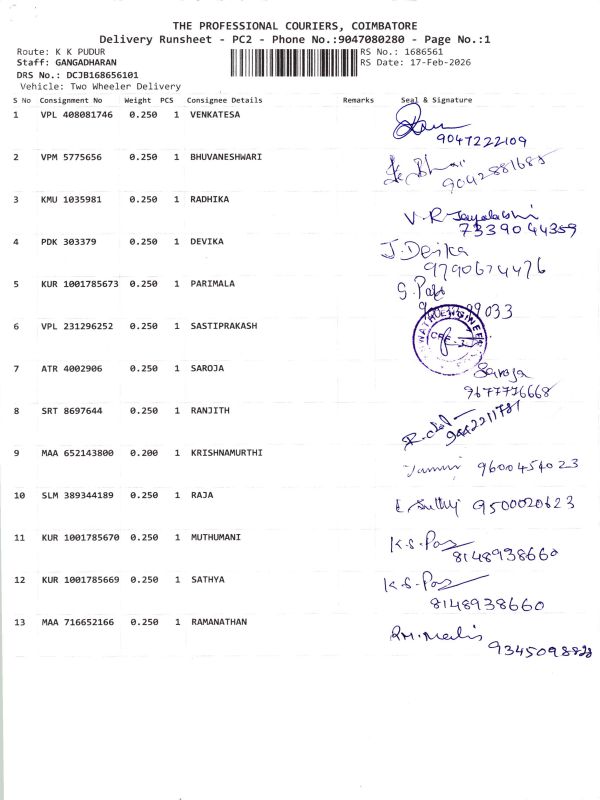 THE PROFESSIONAL COURIERS, COIMBATORE
Delivery Runsheet - PC2 - Phone No.:9047080280 - Page No.:1
Route: K K PUDUR RS No.: 1686561
Staff: GANGADHARAN RS Date: 17-Feb-2026
DRS No.: DCJB168656101
Vehicle: Two Wheeler Delivery
S No Consignment No Weight PCS Consignee Details Remarks Seal & Signature
1 VPL 408081746 0.250 1 VENKATESA
9047222109
2 VPM 5775656 0.250 1 BHUVANESHWARI
9042881685
3 KMU 1035981 0.250 1 RADHIKA
V.R Jayalakshmi
7339044359
4 PDK 303379 0.250 1 DEVIKA
J. Devika
9790674476
5 KUR 1001785673 0.250 1 PARIMALA
6 VPL 231296252 0.250 1 SASTIPRAKASH
7 ATR 4002906 0.250 1 SAROJA
Saroja
9677776668
8 SRT 8697644 0.250 1 RANJITH
9442211781
9 MAA 652143800 0.200 1 KRISHNAMURTHI
9600454023
10 SLM 389344189 0.250 1 RAJA
9500020623
11 KUR 1001785670 0.250 1 MUTHUMANI
8148938660
12 KUR 1001785669 0.250 1 SATHYA
8148938660
13 MAA 716652166 0.250 1 RAMANATHAN